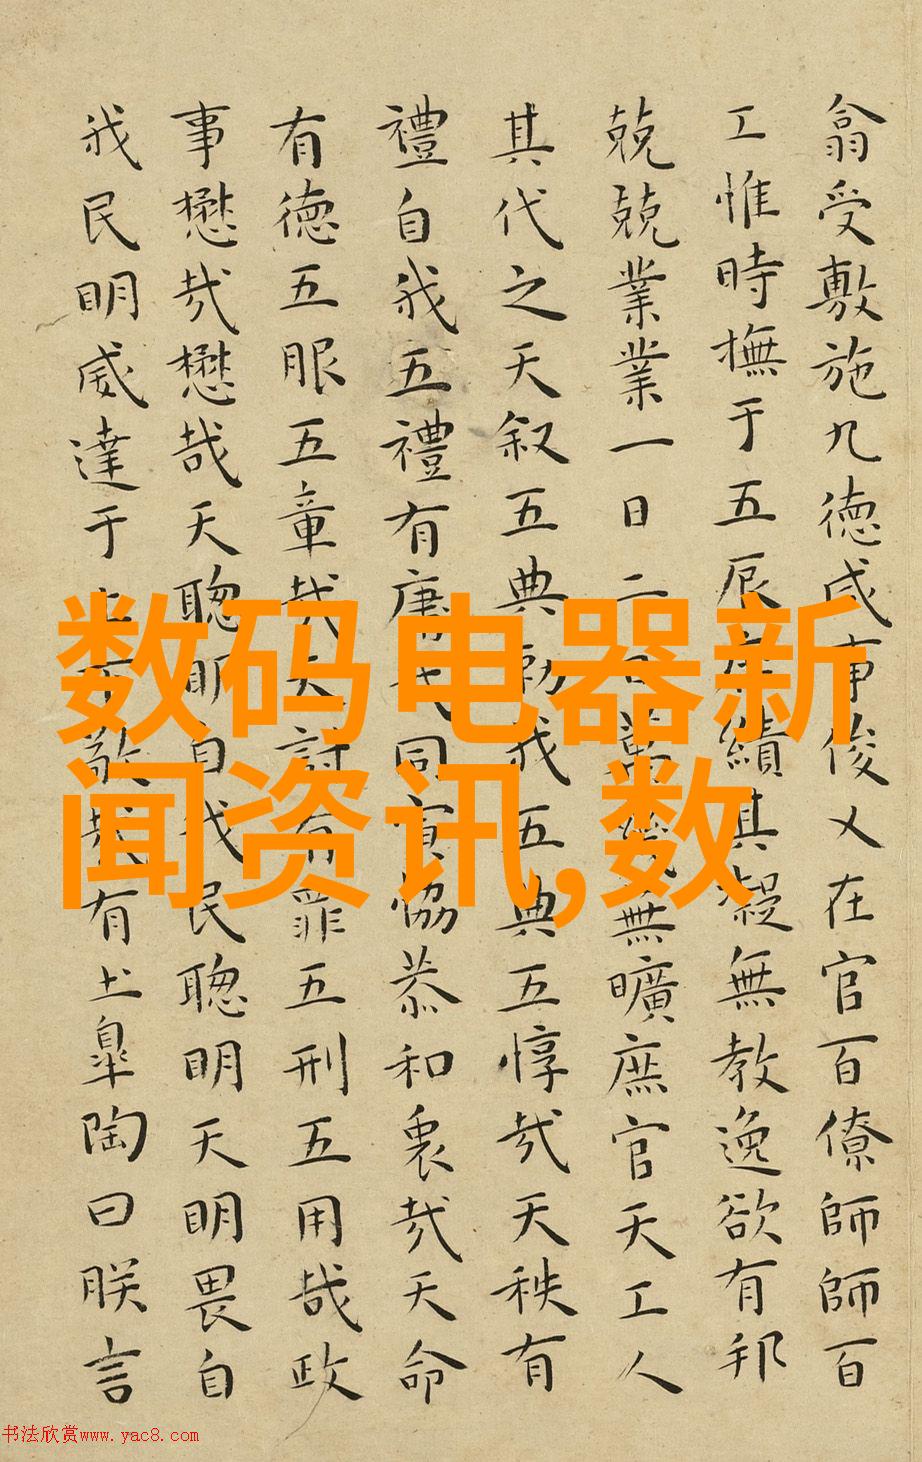 翕受敷施九德咸事俊乂在官百僚師師百
工惟時撫于五辰庶績其凝無教逸欲有邦
兢兢業業一日二日萬幾無曠庶官天工人
其代之天叙五典勑我五典五惇哉天秩有
禮自我五禮有庸哉同寅協恭和衷哉天命
有德五服五章哉天討有罪五刑五用哉政
事懋哉懋哉天聰明自我民聰明天明畏自
我民明威達于上下敬哉有土皐陶曰朕言
数码电器新
闻资讯,数
书法欣赏www.yac8.com